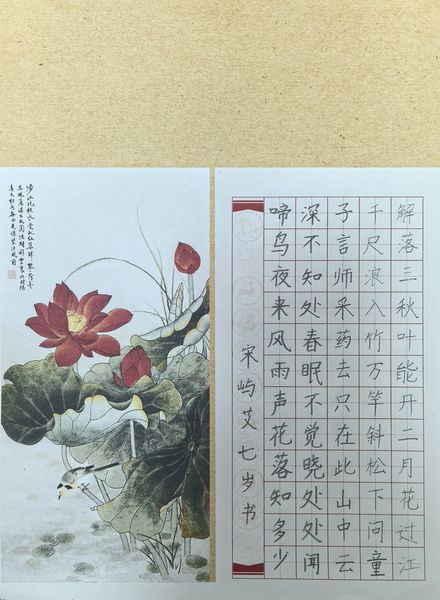 解落三秋叶能开二月花过江
千尺浪入竹万竿斜松下问童
子言师采药去只在此山中云
深不知处春眠不觉晓处处闻
啼鸟夜来风雨声花落知多少
宋屿艾 七岁书